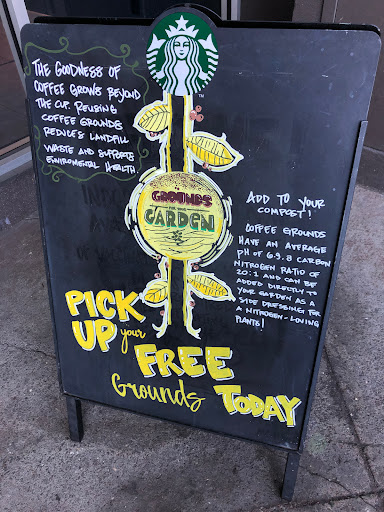 THE GOODNESS OF
COFFEE GROWS BEYOND
THE CUP. REUSING
COFFEE GROUNDS
REDUCES LANDFILL
WASTE AND SUPPORTS
ENVIROMENTAL HEALTH.
TM
GROUNDS
FOR YOUR
GARDEN
ADD TO YOUR
COMPOST!
COFFEE GROUNDS
HAVE AN AVERAGE
PH OF 6.9.8 CARBON
NITROGEN RATIO OF
20:1 AND CAN BE
ADDED DIRECTLY TO
YOUR GARDEN AS A
SIDE DRESSING FOR
A NITROGEN-LOVING
PLANTS!
PICK
UP your
FREE
Grounds TODAY